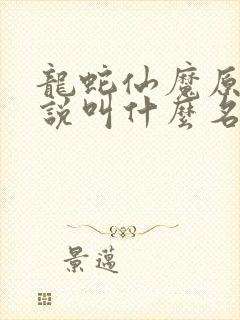 龍蛇仙魔原
說叫什麼名
景邁